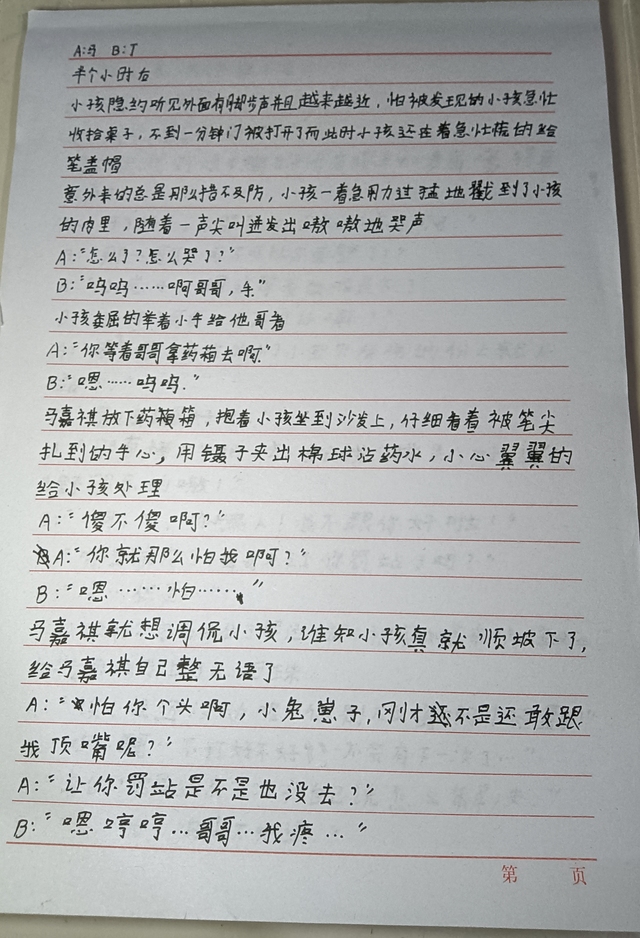 A:马 B:丁
半个小时右
小孩隐约听见外面有脚步声并且越来越近，怕被发现的小孩急忙
收拾桌子，不到一分钟门被打开了而此时小孩还在着急忙慌的给
笔盖帽
意外来的总是那么措不及防，小孩一着急用力过猛地戳到了小孩
的肉里，随着一声尖叫迸发出嗷嗷地哭声
A:“怎么了?怎么哭了?”
B:“呜呜……啊哥哥，手”
小孩委屈的举着小手给他哥看
A:“你等着哥哥拿药箱去啊”
B:“嗯……呜呜.”
马嘉祺放下药箱，抱着小孩坐到沙发上，仔细看着被笔尖
扎到的手心，用镊子夹出棉球沾药水，小心翼翼的
给小孩处理
A:“傻不傻啊?”
A:“你就那么怕我啊?”
B:“嗯……怕……”
马嘉祺就想调侃小孩，谁知小孩真就顺坡下了，
给马嘉祺自己整无语了
A:“怕你个头啊，小兔崽子，刚才不是还敢跟
我顶嘴呢?”
A:“让你罚站是不是也没去?”
B:“嗯哼哼…哥哥…我疼…”
第 页